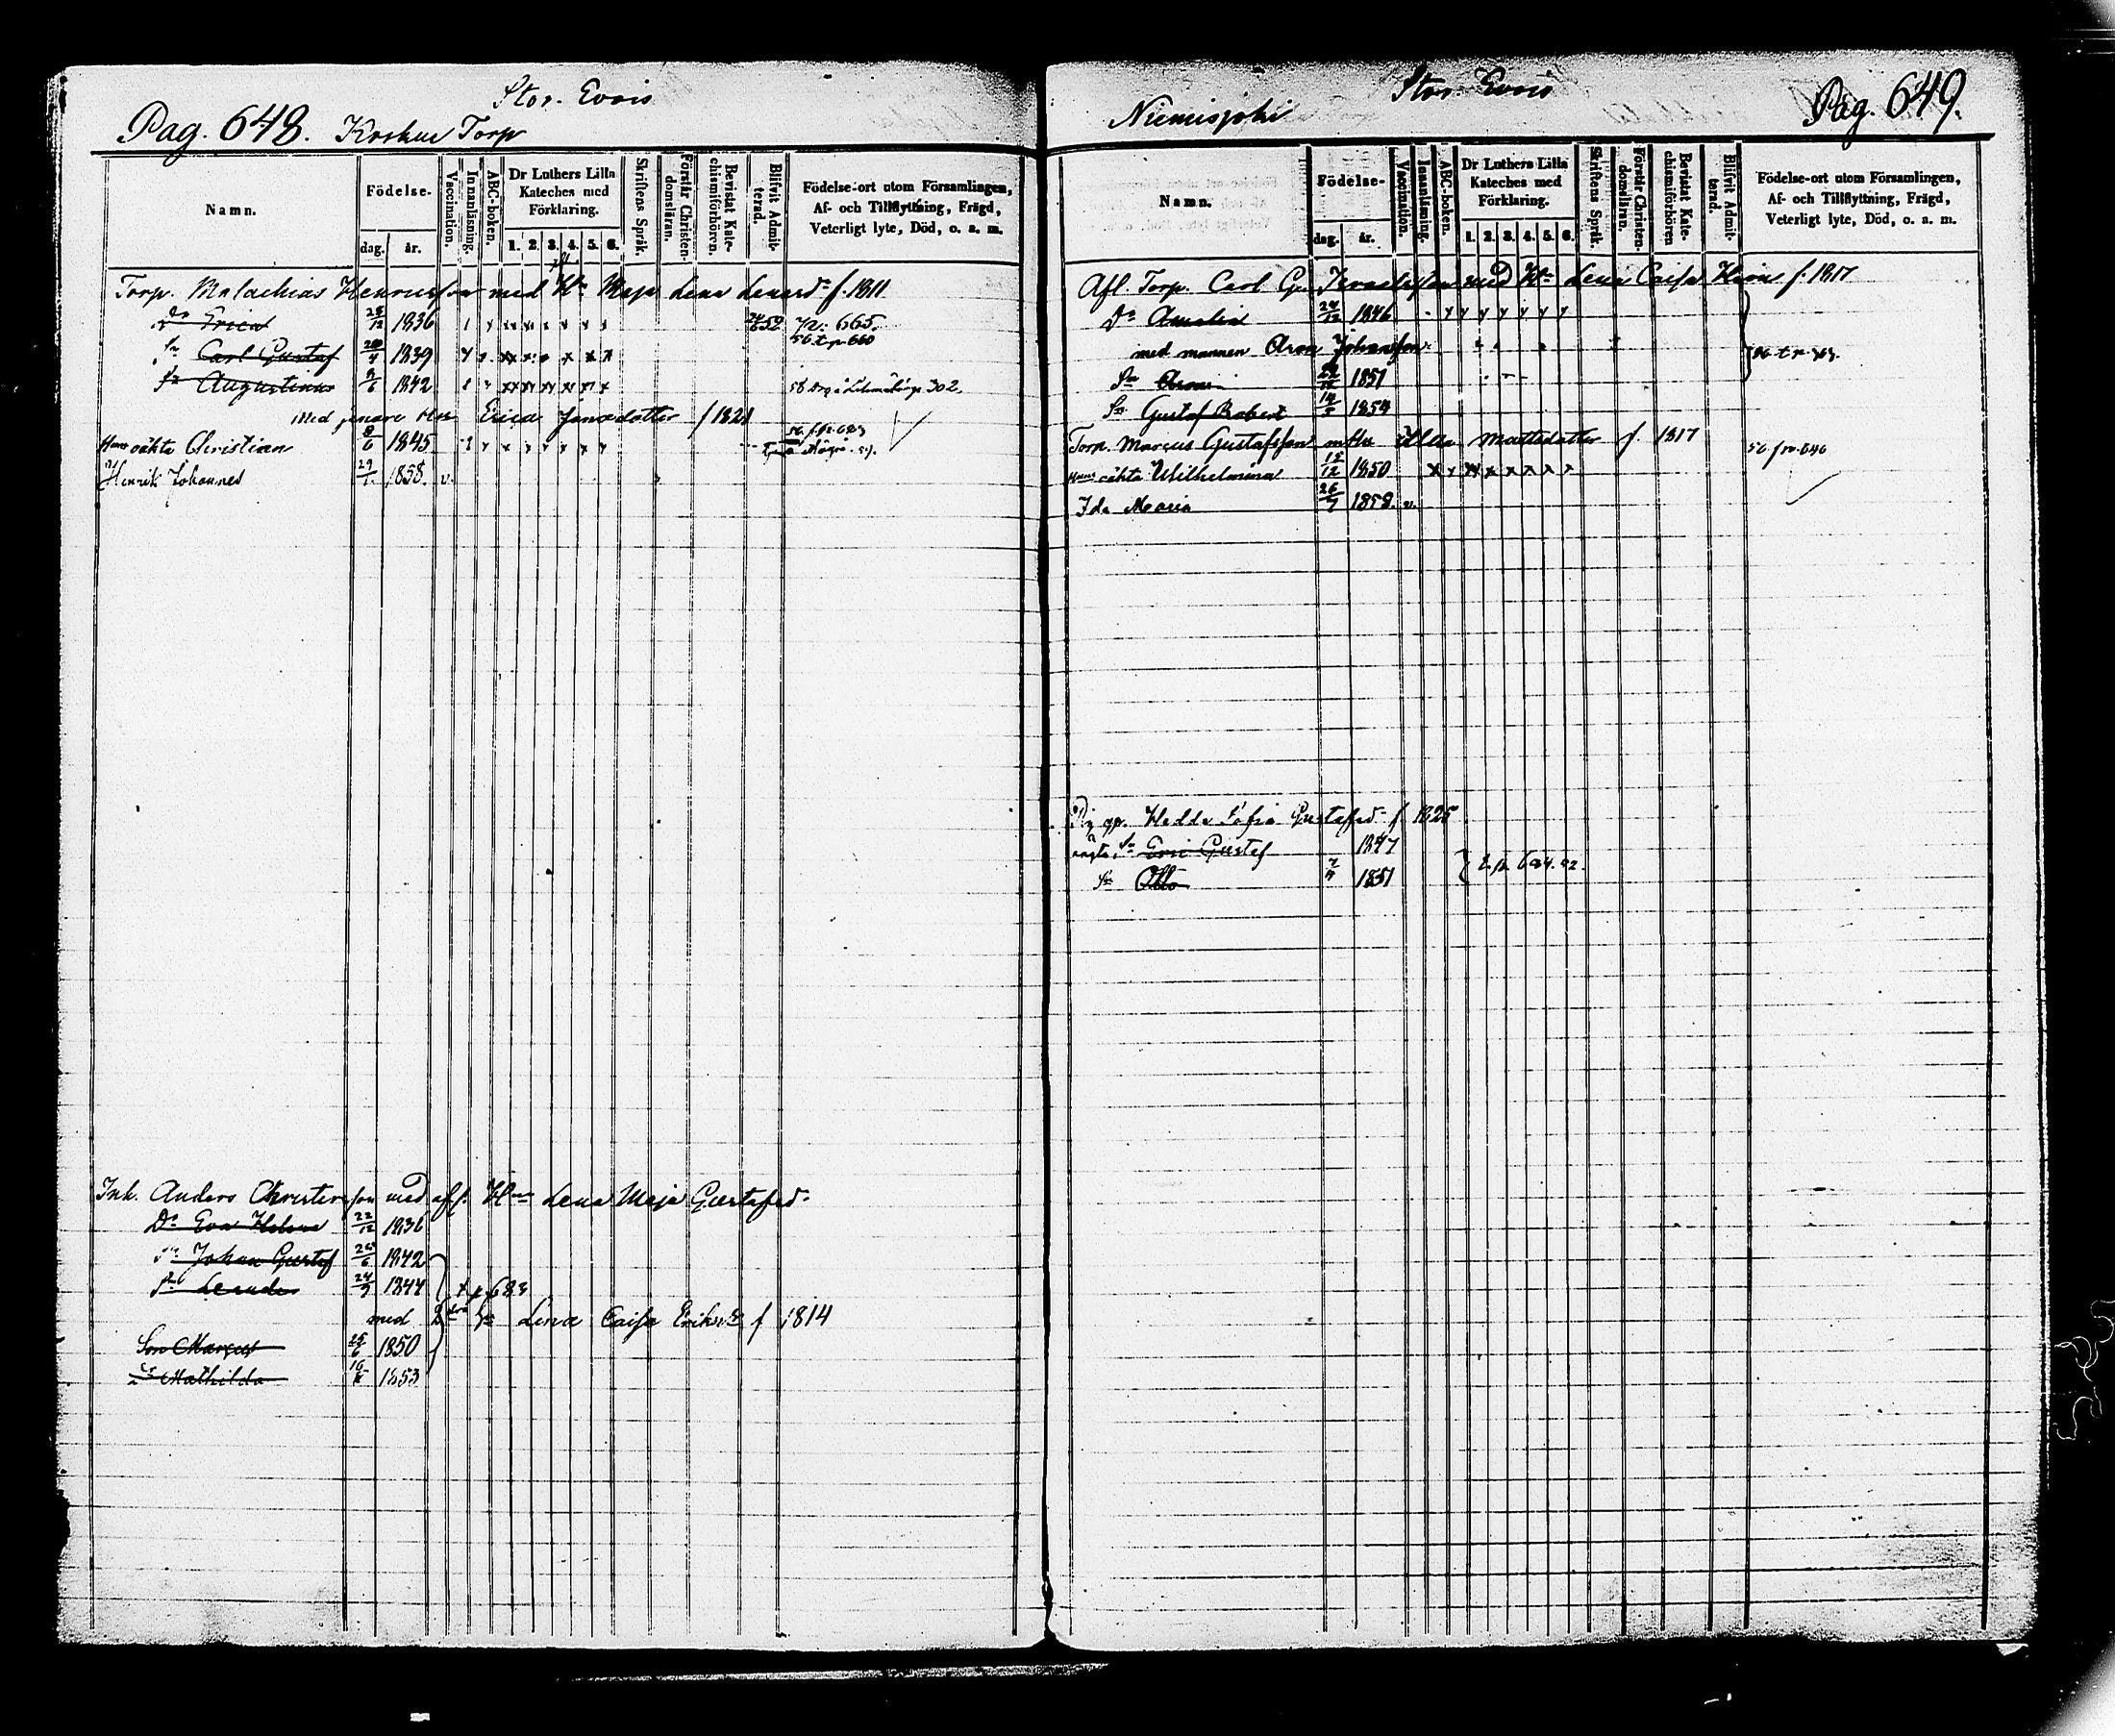 Stor. Evois
Pag. 648. Koskue Torp
Namn. Födelse- dag. år. Vaccination. Innanläsning. ABC-boken. Dr Luthers Lilla Kateches med Förklaring. 1. 2. 3. 4. 5. 6. Skriftens Språk. Förstår Christendomsläran. Bevistat Katechismiförhören. Blifvit Admitterad. Födelse-ort utom Församlingen, Af- och Tillflyttning, Frägd, Veterligt lyte, Död, o. a. m.
Torp. Malachias Henricsson med Hu Maja Lena Lenard f. 1811
Dr Erica 28/12 1836 52 p. 665.
Sn Carl Gustaf 1839 56 t. p. 660
Sn Augustinus 9/6 1842 58 302.
Med senare Hu Erica Jansdotter f 1821
oäkta Christian 8/6 1845
Henrik Johannes 29/1 1858. v.
Inh. Anders Christersson med afl. Hu Lena Maja Gustafsd
Dr Eva Helena 22/12 1836
Sn Johan Gustaf 26/6 1842
Sn Leander 24/9 1844 t. p. 683
med 2dra Hu Lina Caisa Eriksd f 1814
Son Marcus 25/6 1850
Dr Mathilda 1853
Stor. Evois
Niemisjoki Pag. 649.
Namn. Födelse- dag. år. Vaccination. Innanläsning. ABC-boken. Dr Luthers Lilla Kateches med Förklaring. 1. 2. 3. 4. 5. 6. Skriftens Språk. Förstår Christendomsläran. Bevistat Katechismiförhören Blifvit Admitterad. Födelse-ort utom Församlingen, Af- och Tillflyttning, Frägd, Veterligt lyte, Död, o. a. m.
Afl. Torp. Carl Gu med Hu Lena Caisa f. 1817
Dr Amalia 24/12 1846
med mannen Aron Johansson
Sn 1851
Sn Gustaf Robert 14/5 1854
Torp. Marcus Gustafsson m Hu Ulla Mattsdotter f. 1817 56 fr. 646
oäkta Wilhelmina 15/12 1850
Ida Maria 26/7 1858. v.
Hedda Sofia Gustafsd f 1825
Sn Eric Gustaf 1847
Sn Otto 1851